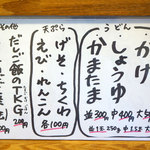 うどん
かけ
しょうゆ
かまたま
並300g 中400g 大5
並1玉250g 中1.5玉 大
天ぷら
げそ・ちくわ
えび・れんこん
各100円
その他
だし飯のTKG
200円